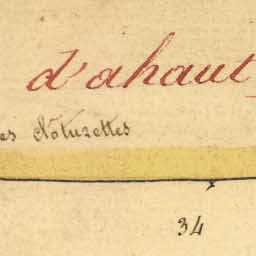 d'ahaut
es Noturettes
34